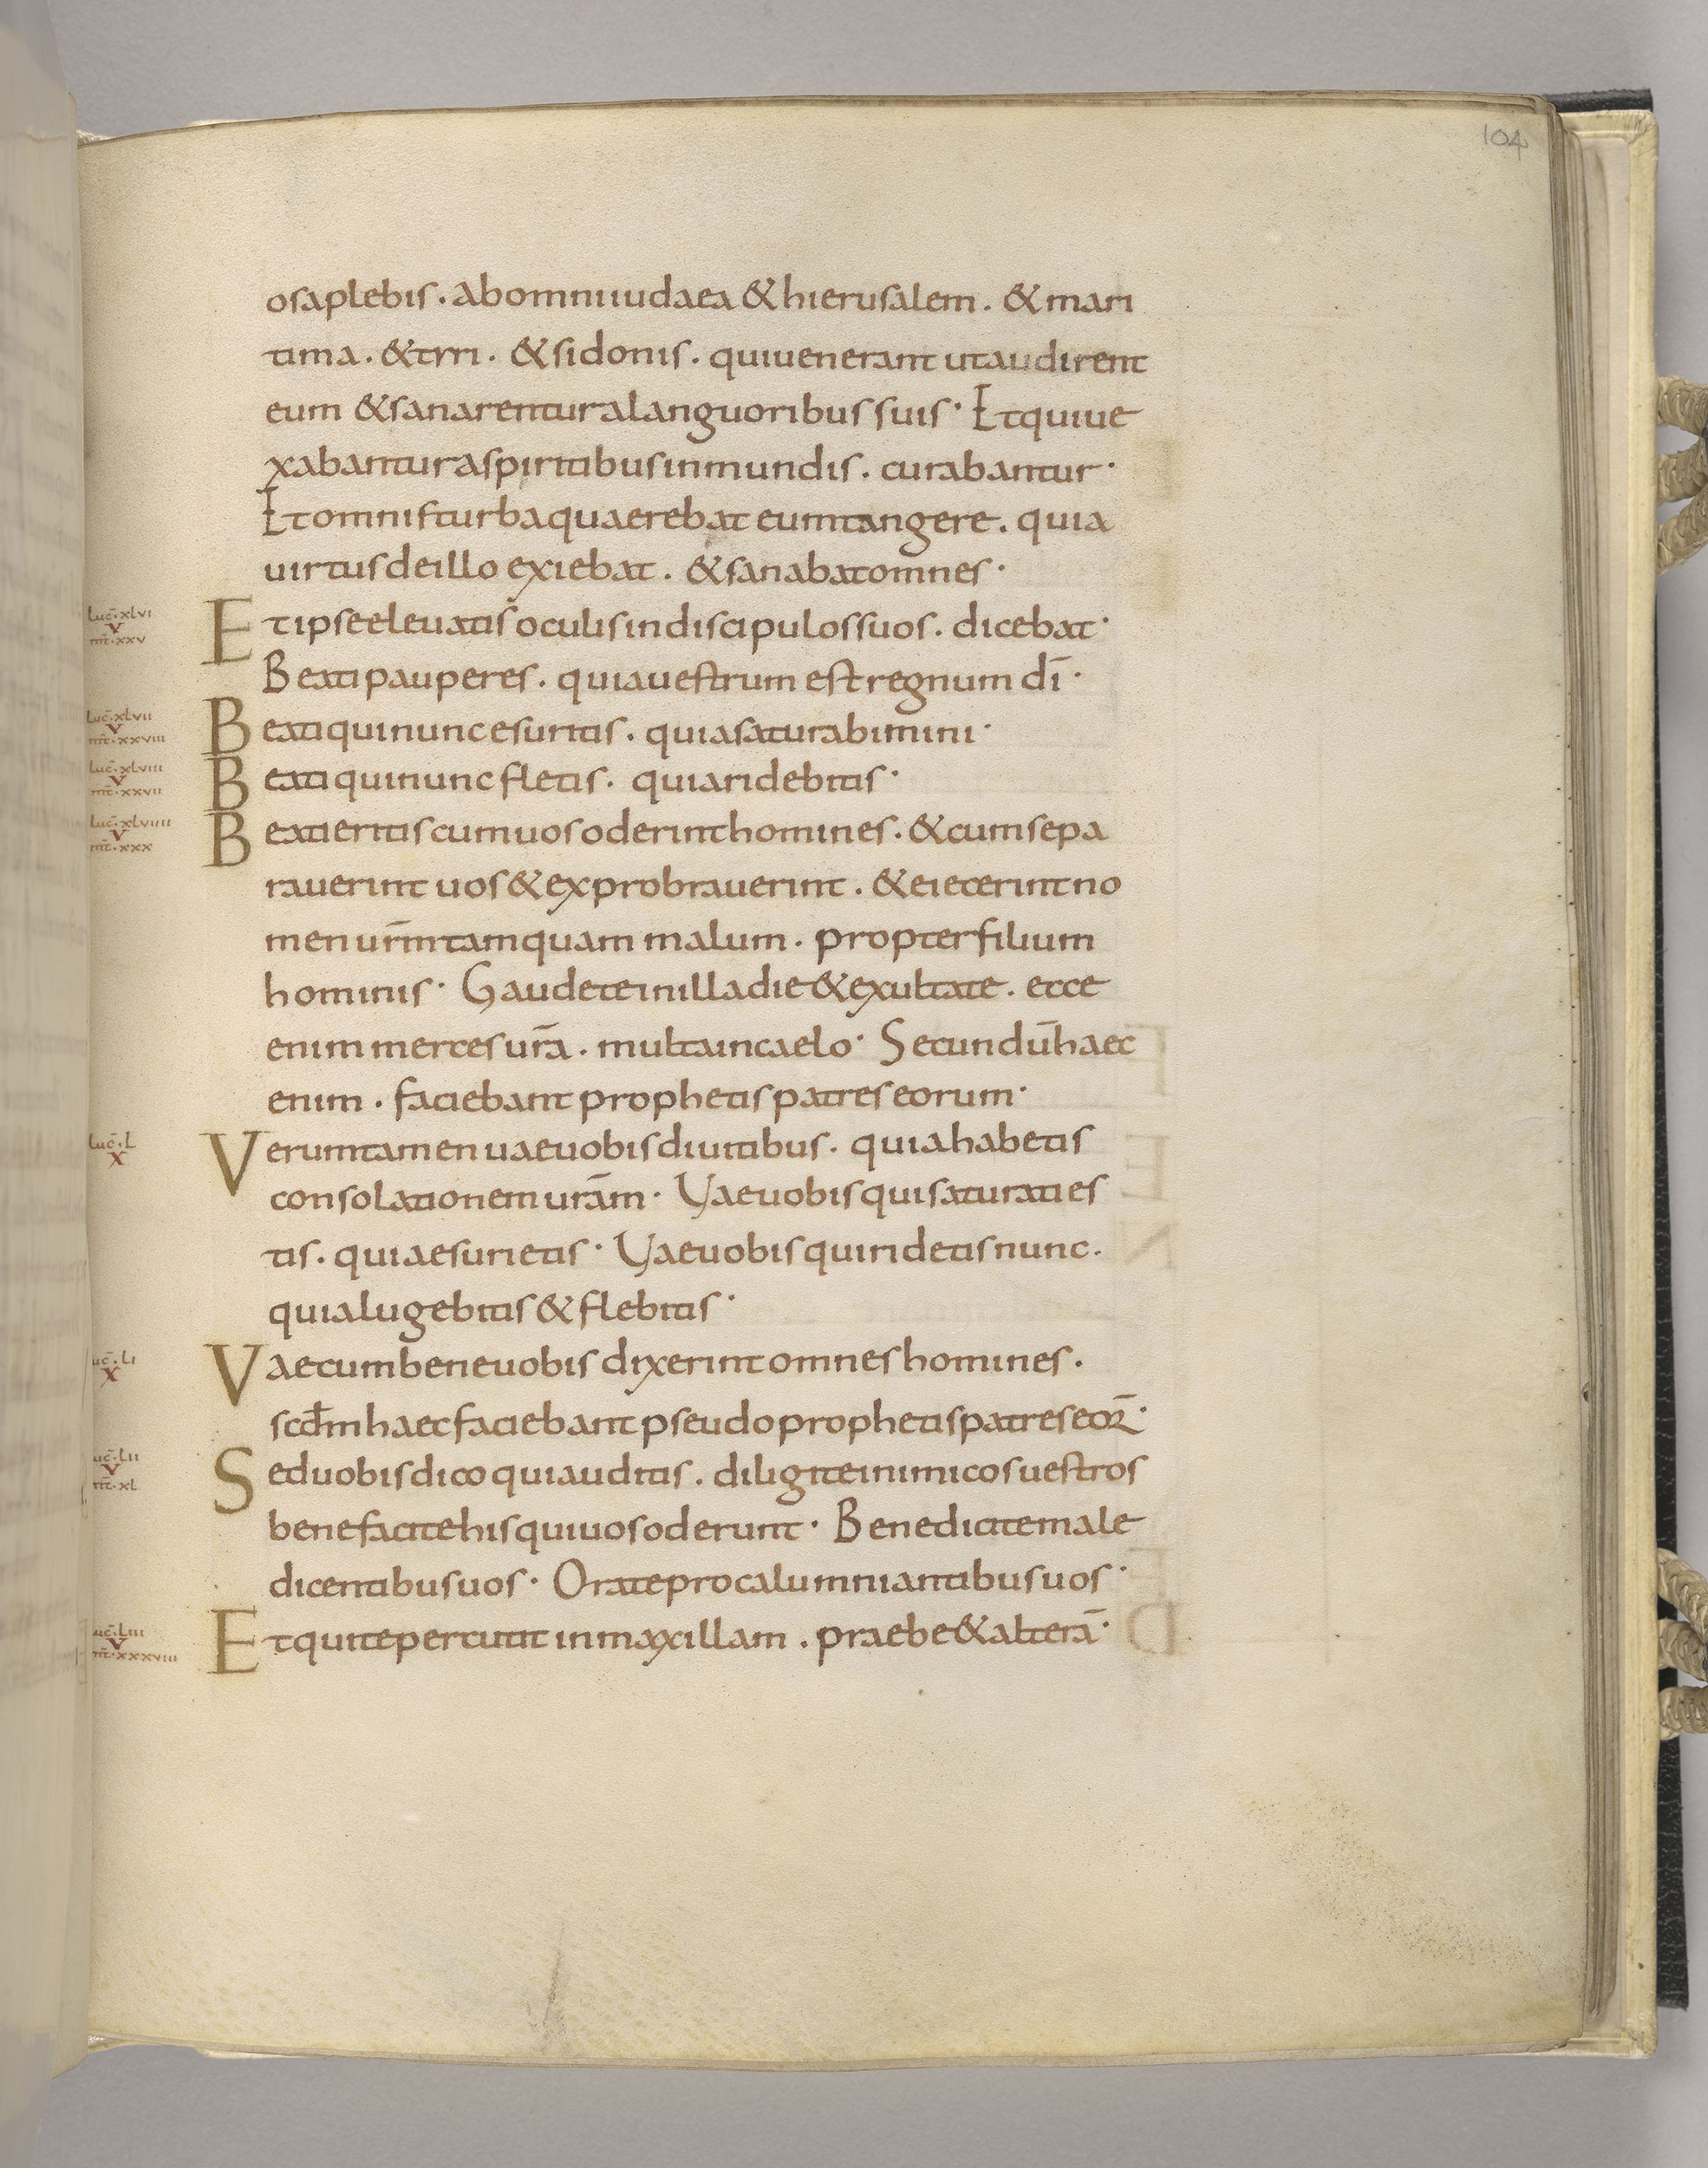 104
osaplebis. abomniiudaea & hierusalem. & mari
tima. & tyri. & sidonis. quiuenerant utaudirent
eum & sanarentur alanguoribus suis· Et quiue
xabantur aspiritibus inmundis. curabantur·
Et omnis turba quaerebat eum tangere. quia
uirtus deillo exiebat. & sanabat omnes·
Luc̄·xLvi
v
mt̄·xxv
Et ipse eleuatis oculis in discipulos suos. dicebat·
Beati pauperes. quia uestrum est regnum dī·
Luc̄·xLvii
v
mt̄·xxviii
Beati qui nunc esuritis. quia saturabimini·
Luc̄·xLviii
v
mt̄·xxvii
Beati qui nunc fletis. quia ridebitis·
Luc̄·xLviiii
v
mt̄·xxx
Beati eritis cum uos oderint homines. & cum sepa
rauerint uos & exprobrauerint. & eiecerint no
men ur̄m tamquam malum. propter filium
hominis· Gaudete in illa die & exultate. ecce
enim merces ur̄a. multa in caelo· Secundū haec
enim. faciebant prophetis patres eorum·
Luc̄·L
x
Verumtamen uae uobis diuitibus. quia habetis
consolationem ur̄am· Vae uobis qui saturati es
tis. quia esurietis· Vae uobis qui ridetis nunc.
quia lugebitis & flebitis·
uc̄·Li
x
Vae cum bene uobis dixerint omnes homines.
scd̄m haec faciebant pseudoprophetis patres eoꝝ·
uc̄·Lii
v
mt̄·xL
Sed uobis dico qui auditis. diligite inimicos uestros
benefacite his qui uos oderunt· Benedicite male
dicentibus uos· Orate pro calumniantibus uos·
uc̄·Liii
v
mt̄·xxxviii
Et qui te percutit in maxillam. praebe & alterā·